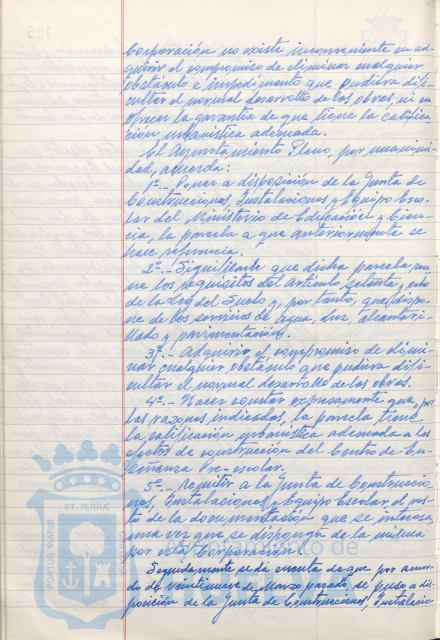 Corporación no existe inconveniente en ad-
quirir el compromiso de eliminar cualquier
obstáculo e impedimento que pudiera difi-
cultar el normal desarrollo de las obras, ni en
ofrecer la garantía de que tiene la califica
ción urbanística adecuada.
El Ayuntamiento Pleno, por unanimi-
dad, acuerda:
1º.- Poner a disposición de la Junta de
Construcciones, Instalaciones y Equipo Esco-
lar del Ministerio de Educación y Cien-
cia, la parcela a que anteriormente se
hace referencia.
2º.- Significante que dicha parcela reu-
ne los requisitos del artículo setenta y ocho
de la Ley del Suelo y, por tanto, que dispo-
ne de los servicios de agua, luz, alcantari-
llado y pavimentación.
3º.- Adquirir el compromiso de elimi-
nar cualquier obstáculo que pudiera difi-
cultar el normal desarrollo de las obras.
4º.- Hacer constar expresamente que, por
las razones indicadas, la parcela tiene
la calificación urbanística adecuada a los
efectos de construcción del Centro de En-
señanza Pre-escolar.
5º.- Remitir a la Junta de Construccio-
nes, Instalaciones y Equipo Escolar el res-
to de la documentación que se interesa,
una vez que se disponga de la misma
por esta Corporación.
Seguidamente se dá cuenta de que por acuer-
do de veintinueve de Marzo pasado, se puso a dis-
posición de la Junta de Construcciones, Instalacio-
ET-TERRÆ
PORTUS MARIS